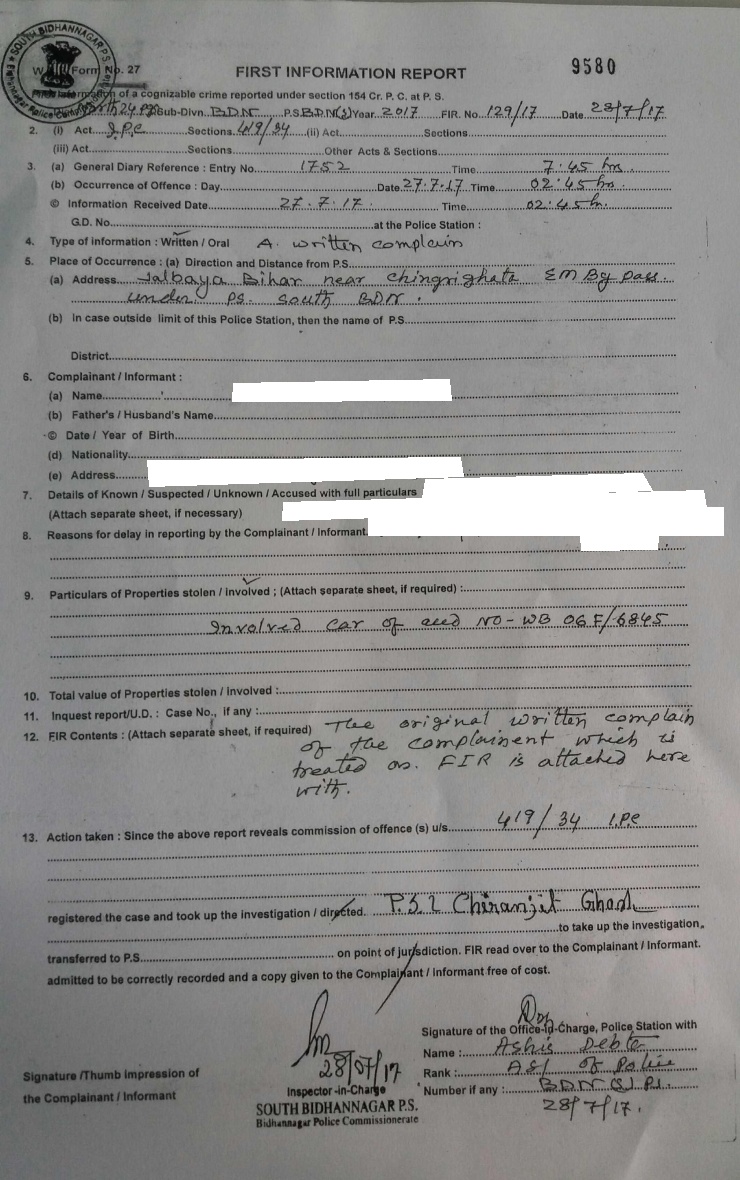 SOUTH BIDHANNAGAR P.S.
Form No. 27
FIRST INFORMATION REPORT
9580
of a cognizable crime reported under section 154 Cr. P. C. at P. S.
Sub-Divn. BDN P.S. BDN(S) Year 2017 FIR. No. 129/17 Date 28/7/17
2. (i) Act I.P.C Sections 419/34 (ii) Act Sections
(iii) Act Sections Other Acts & Sections
3. (a) General Diary Reference : Entry No. 1752 Time 7:45 hrs
(b) Occurrence of Offence : Day Date 27.7.17 Time 02:45 hrs.
© Information Received Date 27.7.17. Time 02:45 hr.
G.D. No. at the Police Station :
4. Type of information : Written / Oral A. written complain
5. Place of Occurrence : (a) Direction and Distance from P.S.
(a) Address Jalbaya Bihar near chingrighata EM By pass.
under PS. South BDN.
(b) In case outside limit of this Police Station, then the name of P.S.
District
6. Complainant / Informant :
(a) Name
(b) Father's / Husband's Name
© Date / Year of Birth
(d) Nationality
(e) Address
7. Details of Known / Suspected / Unknown / Accused with full particulars
(Attach separate sheet, if necessary)
8. Reasons for delay in reporting by the Complainant / Informant.
9. Particulars of Properties stolen / involved ; (Attach separate sheet, if required) :
Involved car of accd NO - WB 06F/6845
10. Total value of Properties stolen / involved :
11. Inquest report/U.D. : Case No., if any :
12. FIR Contents : (Attach separate sheet, if required) The original written complain
of the complainent which is
treated as. FIR is attached here
with.
13. Action taken : Since the above report reveals commission of offence (s) u/s. 419/34 IPC
registered the case and took up the investigation / directed. P.S.I Chiranjit Ghosh
to take up the investigation,
transferred to P.S. on point of jurisdiction. FIR read over to the Complainant / Informant.
admitted to be correctly recorded and a copy given to the Complainant / informant free of cost.
28/07/17
Inspector-in-Charge
SOUTH BIDHANNAGAR P.S.
Bidhannagar Police Commissionerate
Signature of the Office-in-Charge, Police Station with
Name : Ashis Debta
Rank : ASI of Police
Number if any : BDN (S) P.S.
28/7/17.
Signature /Thumb impression of
the Complainant / Informant